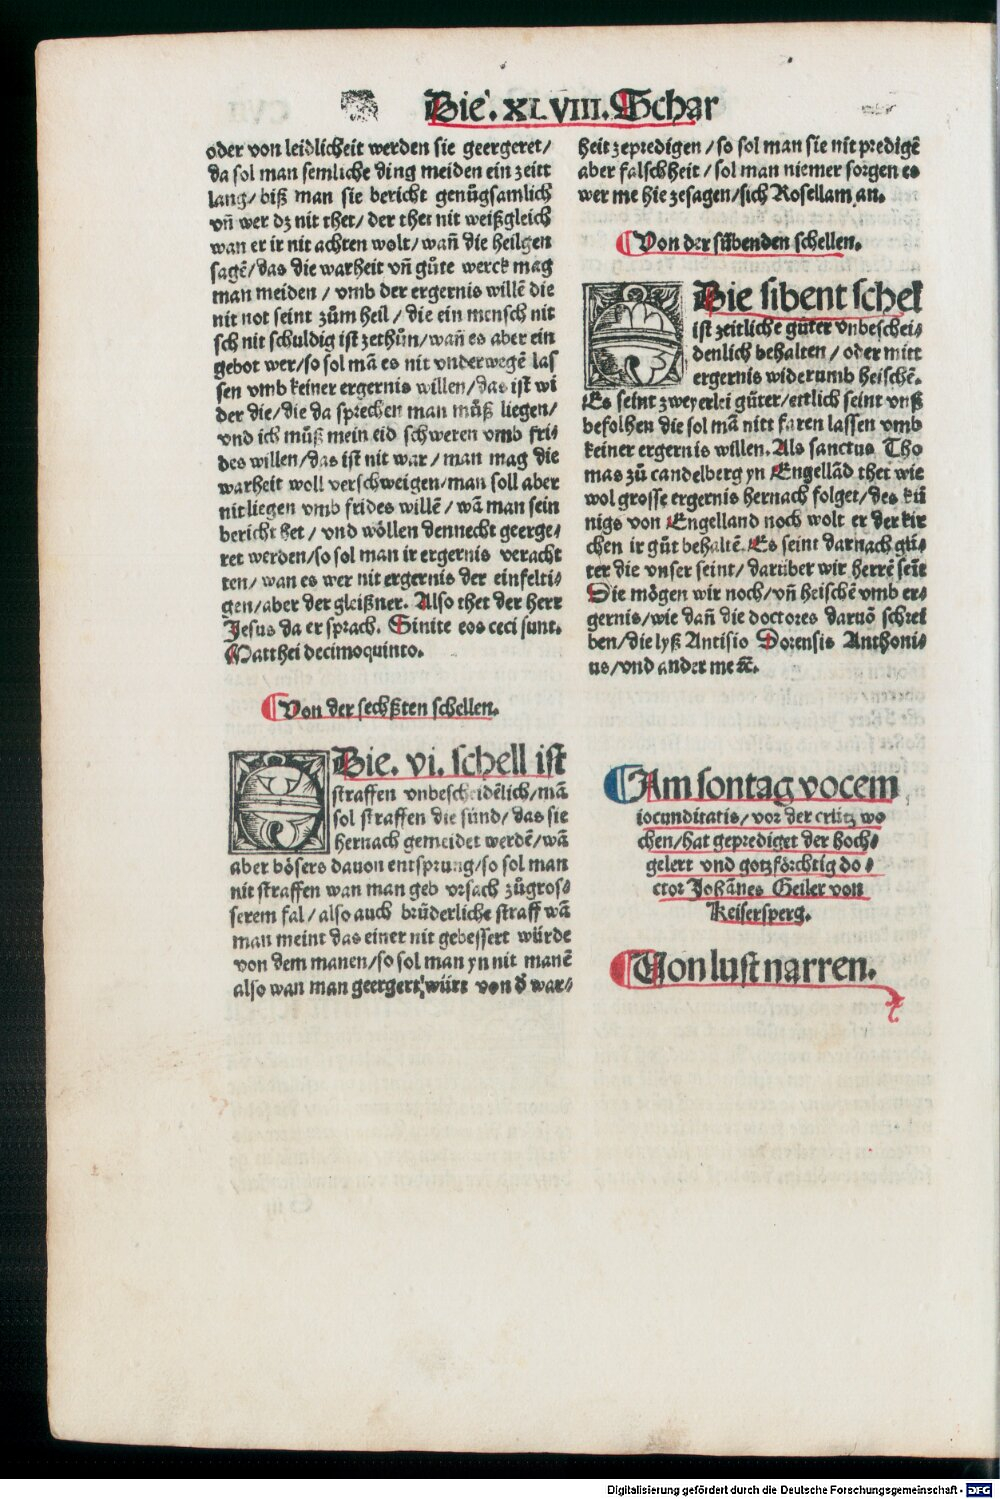 Die. XLVIII. Schar
oder von leidlicheit werden sie geergeret/
da sol man semliche ding meiden ein zeitt
lang/ biß man sie bericht genůgsamlich
vñ wer dz nit thet/ der thet nit weißgleich
wan er ir nit achten wolt/ wañ die heilgen
sagẽ/ das die warheit vñ gůte werck mag
man meiden / vmb der ergernis willẽ die
nit not seint zům heil / die ein mensch nit
sch nit schuldig ist zethůn/ wañ es aber ein
gebot wer/ so sol mã es nit vnderwegẽ las
sen vmb keiner ergernis willen/ das ist wi
der die/ die da sprechen man můß liegen/
vnd ich můß mein eid schweren vmb fri⸗
des willen/ das ist nit war / man mag die
warheit woll verschweigen/ man soll aber
nit liegen vmb frides willẽ / wã man sein
bericht het / vnd wöllen dennecht geerge⸗
ret werden/ so sol man ir ergernis veracht
ten/ wan es wer nit ergernis der einfelti⸗
gen/ aber der gleißner. Also thet der herr
Jesus da er sprach. Sinite eos ceci sunt.
Matthei decimoquinto.
¶ Von der sechßten schellen.
Die. vi. schell ist
straffen vnbescheidẽlich/ mã
sol straffen die sünd/ das sie
hernach gemeidet werdẽ/ wã
aber bösers dauon entsprung/ so sol man
nit straffen wan man geb vrsach zůgros⸗
serem fal/ also auch brüderliche straff wã
man meint das einer nit gebessert würde
von dem manen/ so sol man yn nit manẽ
also wan man geergert würt von d' war⸗
heit zepredigen / so sol man sie nit predigẽ
aber falschheit / sol man niemer sorgen es
wer me hie zesagen/ sich Rosellam an.
¶ Von der sibenden schellen.
Die sibent schel
ist zeitliche güter vnbeschei⸗
denlich behalten / oder mitt
ergernis widerumb heischẽ.
Es seint zweyerlei güter/ ertlich seint vnß
befolhen die sol mã nitt faren lassen vmb
keiner ergernis willen. Als sanctus Tho
mas zů candelberg yn Engellãd thet wie
wol grosse ergernis hernach folget/ des kü
nigs von Engelland noch wolt er der kir
chen ir gůt behaltẽ. Es seint darnach gü⸗
ter die vnser seint/ darüber wir herrẽ seĩt
Die mögen wir noch/ vñ heischẽ vmb er⸗
gernis/ wie dañ die doctores daruõ schrei
ben/ die lyß Antisio Dorensis Anthoni⸗
us/ vnd ander me ꝛc.
¶ Am sontag vocem
iocunditatis/ vor der crütz wo
chen/ hat geprediget der hoch⸗
gelert vnd gotzförchtig do⸗
ctor Johãnes Geiler von
Keisersperg.
¶ Von lust narren.
Digitalisierung gefördert durch die Deutsche Forschungsgemeinschaft - DFG